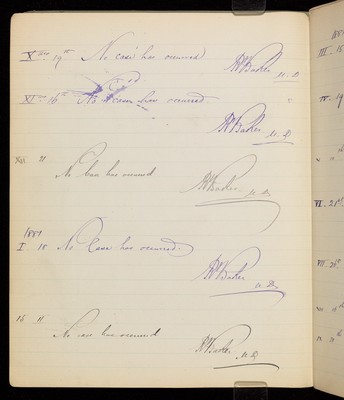 X 19th No case has occurred
W Barker M.D
XI 16th No case has occurred
W Barker M.D
XII 21 No Case has occurred
W Barker M.D
I 18 No Case has occurred
W Barker M.D
15 11 No case has occurred
W Barker M.D
III 15
IV. 19
VI. 21st
VII.